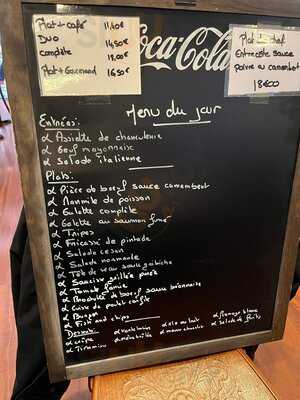 Plat + café 11.40€
DUO 14,50€
complète 18.00€
Plat + Gourmand 16.50€
Coca-Cola
Plat du chef
Entrecôte sauce
Poivre ou camembert
18€00
Menu du jour
Entrées:
α Assiette de charcuterie
α Oeuf mayonnaise
α Salade italienne
Plats:
α Pièce de boeuf sauce camembert
α Marmite de poisson
α Galette complète
α Galette au saumon fumé
α Tripes
α Fricassé de pintade
α Salade cesar
α Salade normande
α Tête de veau sauce gribiche
α Saucisse grillée purée
α Tomate farcie
α Brochette de boeuf sauce béarnaise
α Cuisse de poulet confite
α Burger
α Fish and chips
Desserts:
α crêpe
α Tiramisu
α île flottante
α fromage blanc
α salade de fruits